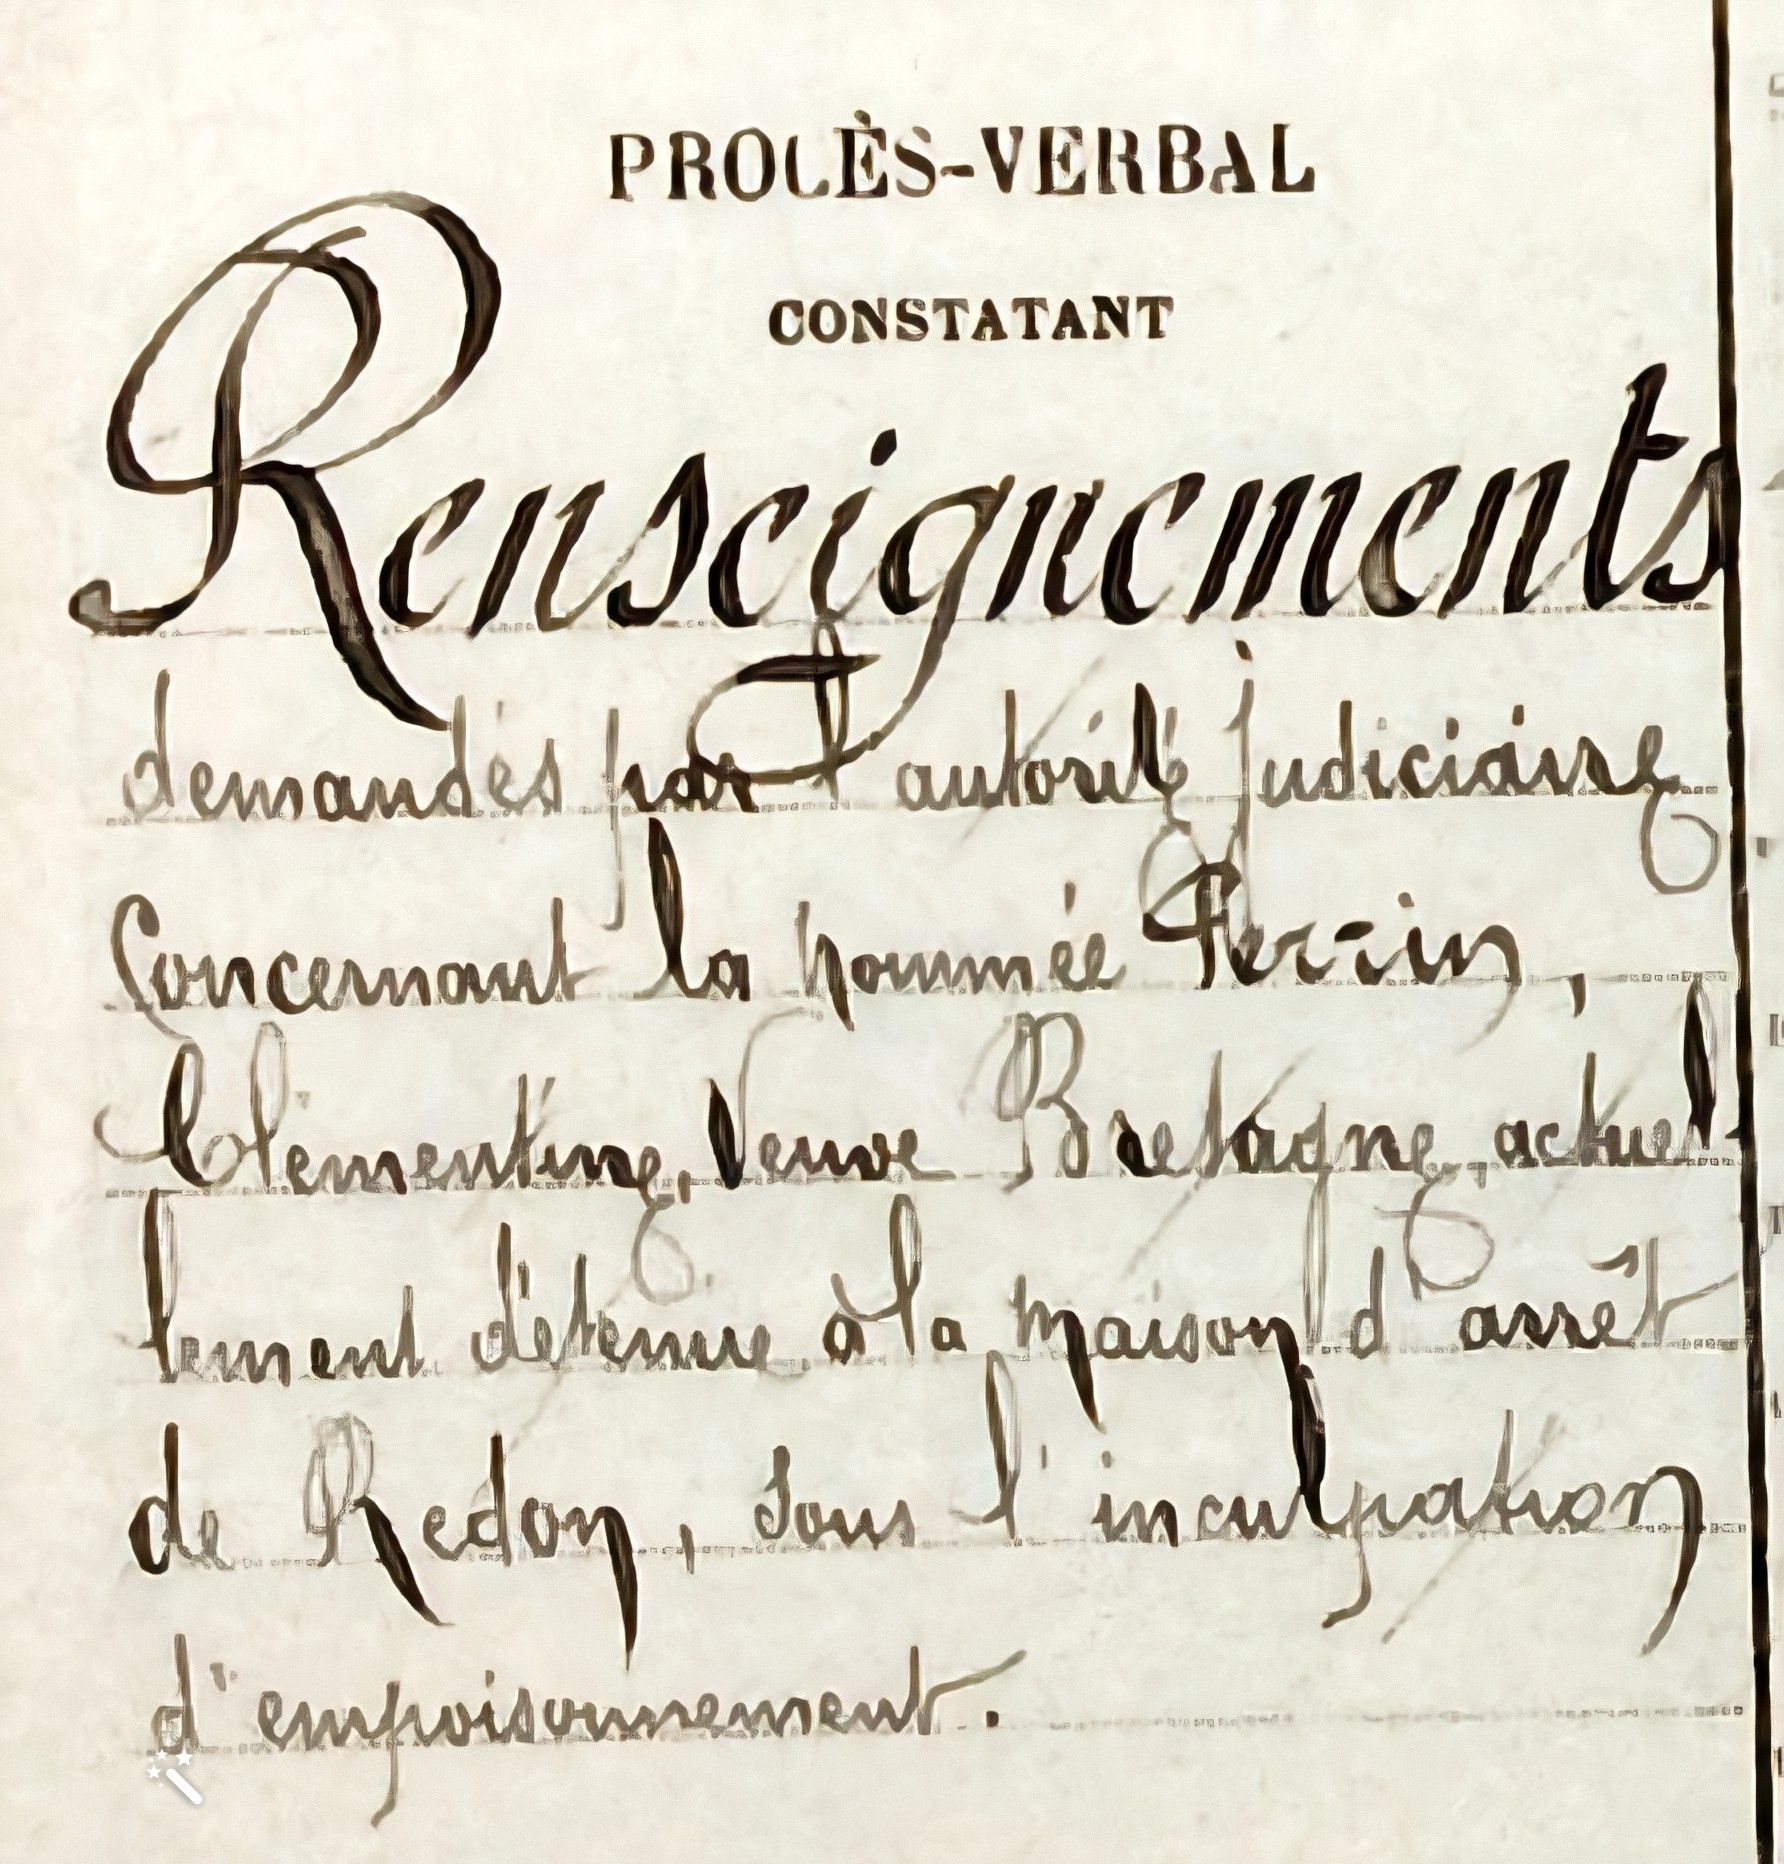 PROCÈS-VERBAL
CONSTATANT
Renseignements
demandés par l'autorité judiciaire
Concernant la nommée Perrin,
Clémentine, Veuve Bretagne, actuel-
lement détenue à la maison d'arrêt
de Redon, sous l'inculpation
d'empoisonnement.